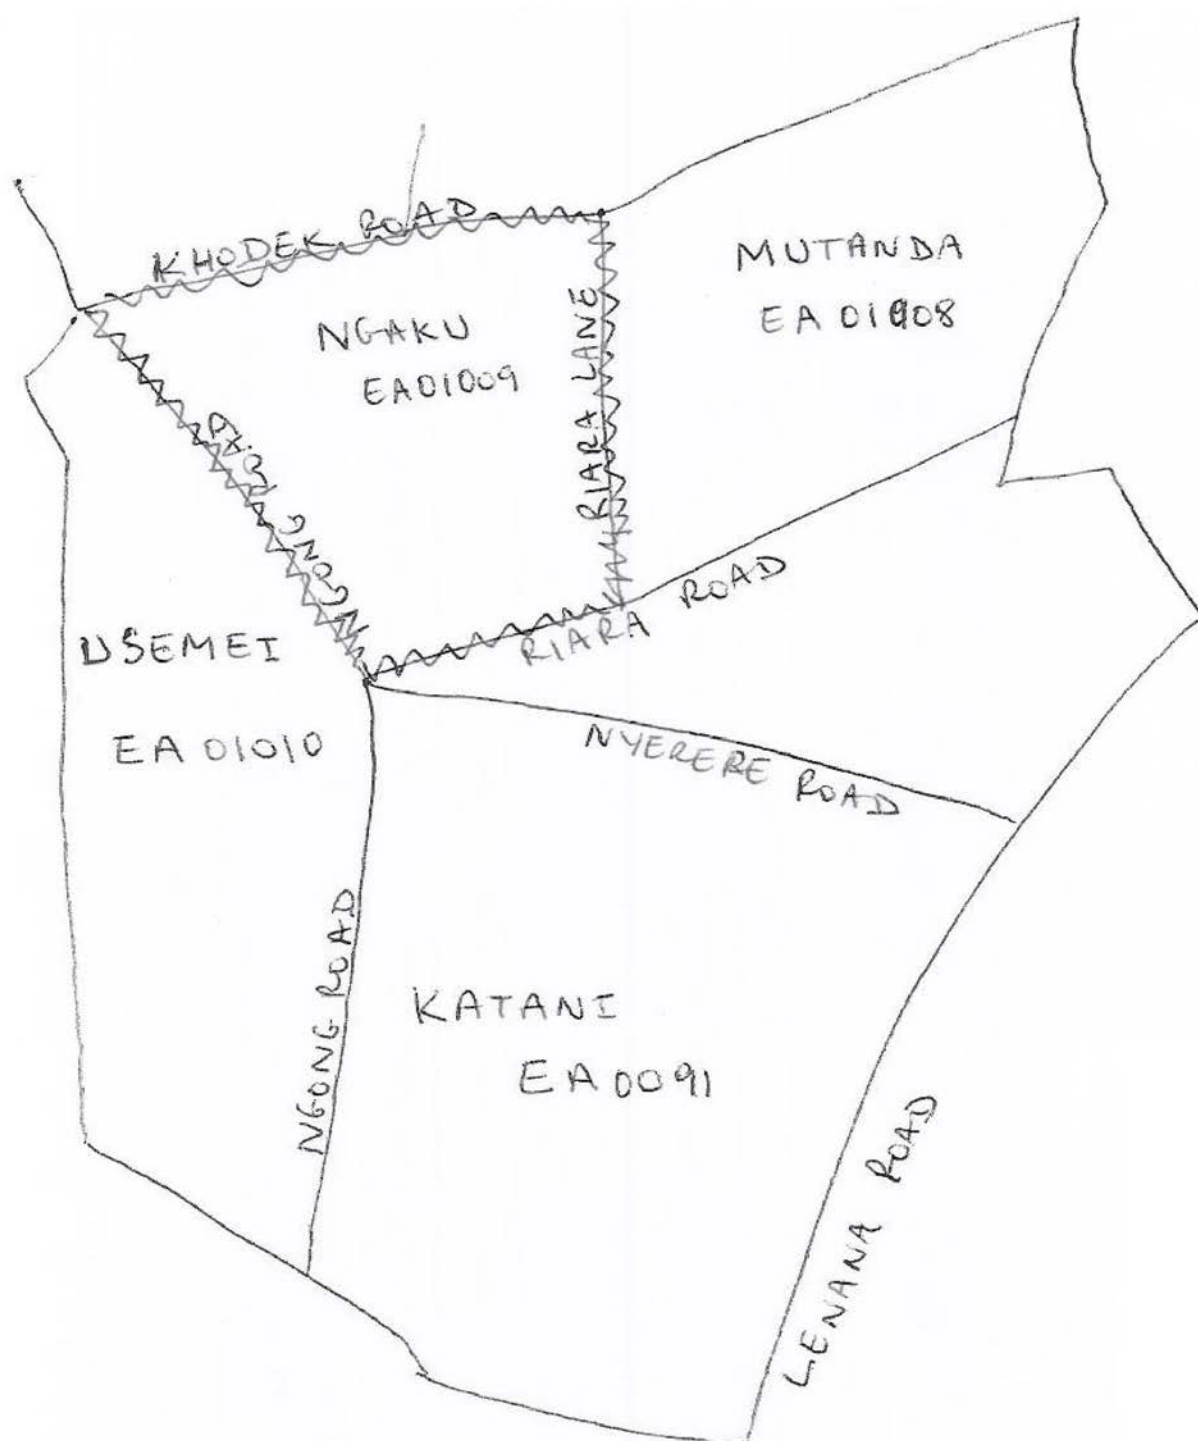 KHODEK ROAD
MUTANDA
EA 01908
NGAKU
EA01009
RIARA LANE
NGONG ROAD
RIARA ROAD
USEMEI
EA 01010
NYERERE ROAD
NGONG ROAD
KATANI
EA0091
LENANA ROAD